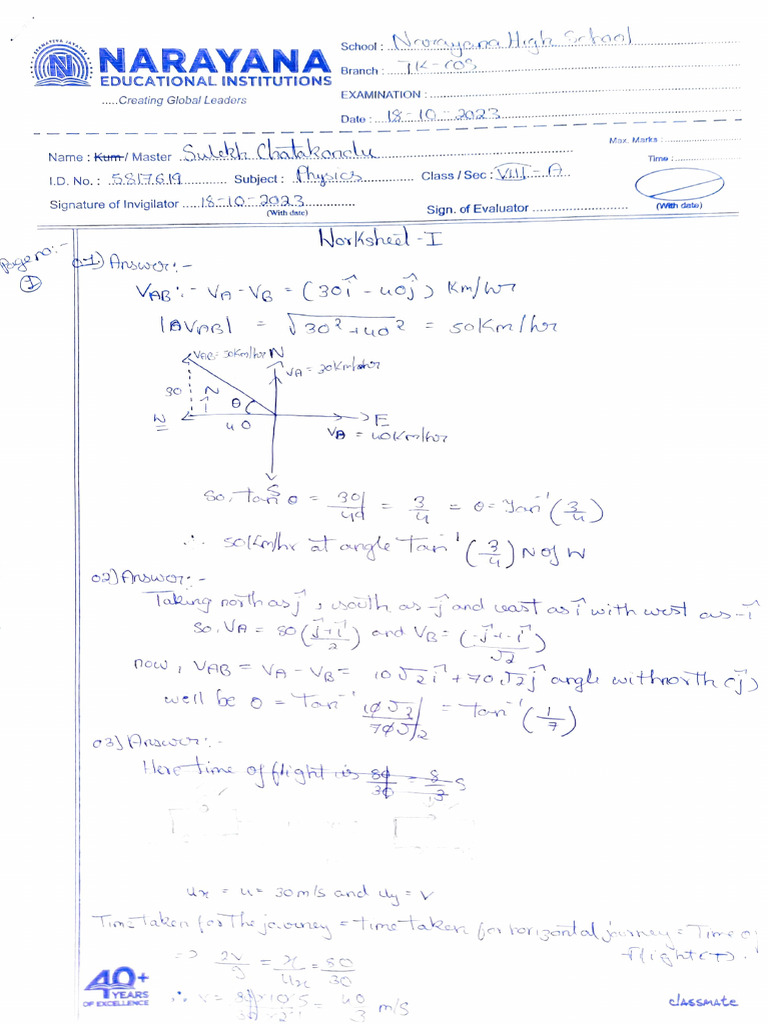 NARAYANA
EDUCATIONAL INSTITUTIONS
.....Creating Global Leaders
School : Narayana High School
Branch :
EXAMINATION :
Date : 18-10-2023
Max. Marks :
Name : Kum / Master Sulekh Chatakondu
Time :
I.D. No. : 5817619 Subject : Physics Class / Sec : VIII - A
Signature of Invigilator 18-10-2023
(With date)
Sign. of Evaluator
(With date)
Worksheet - I
Page no:- 1
01) Answer:-
VAB :- VA - VB = (30i - 40j) Km/hr
|AVAB| = √30² + 40² = 50Km/hr
VAB = 50Km/hr N
VA = 30Km/hr
30 N θ
W 40 E
VB = 40Km/hr
S
so, tan θ = 30/40 = 3/4 = θ = Tan⁻¹(3/4)
∴ 50Km/hr at angle Tan⁻¹(3/4) N of W
02) Answer:-
Taking north as j, south as -j and east as i with west as -i
so, VA = 80(j+i/2) and VB = (-j+-i/√2)
now, VAB = VA - VB = 10√2i + 70√2j angle with north (j)
well be θ = Tan⁻¹ 10√2/70√2 = Tan⁻¹(1/7)
03) Answer:-
Here time of flight is 80/30 = 8/3 s
ux = u = 30m/s and uy = v
Time taken for the journey = time taken for horizontal journey = Time of
flight(T).
=> 2v/g = x/ux = 80/30
∴ v = = 40/3 m/s
40+
YEARS
OF EXCELLENCE
classmate